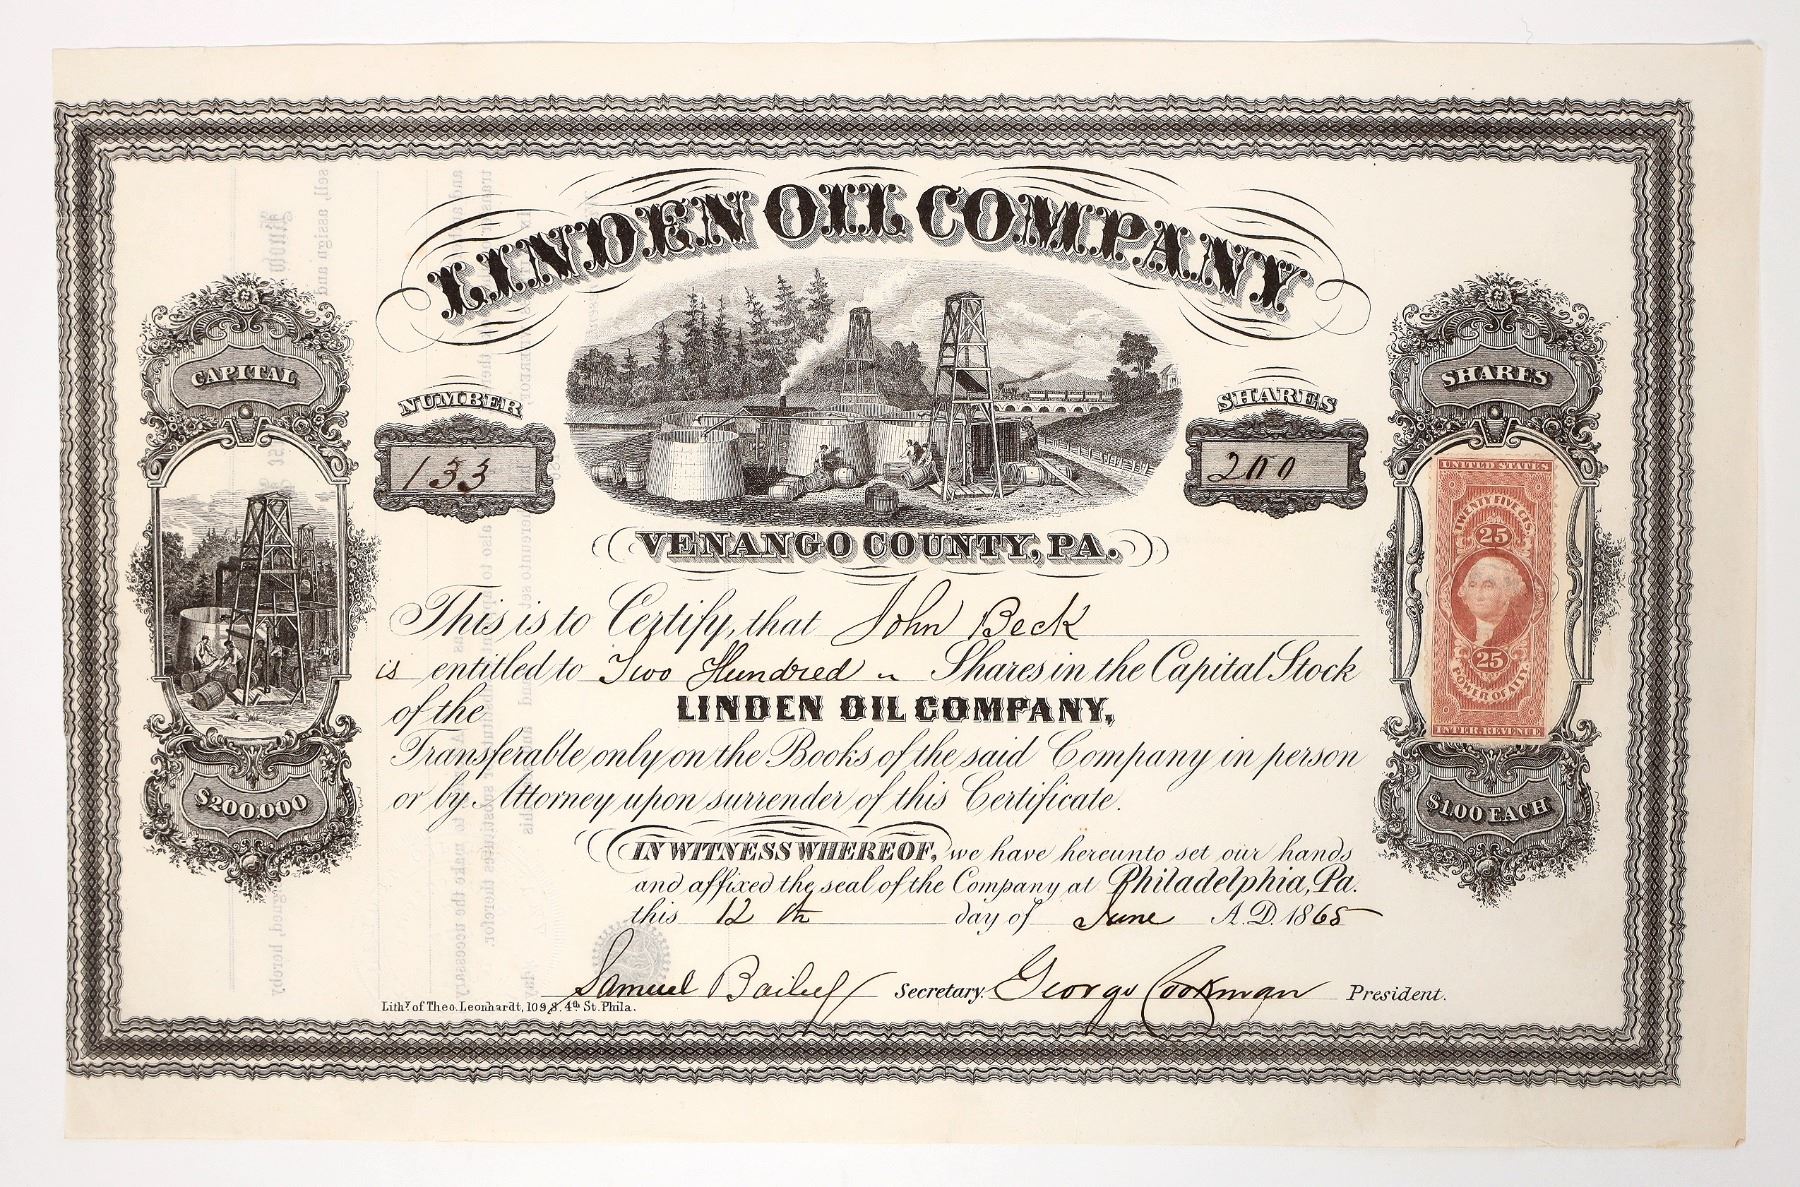 LINDEN OIL COMPANY
CAPITAL
$200.000
NUMBER
133
SHARES
200
SHARES
$1.00 EACH
UNITED STATES
TWENTY FIVE CTS.
25
25
POWER OF ATT'Y.
INTER. REVENUE
VENANGO COUNTY, PA.
This is to Certify, that John Beck
is entitled to Two Hundred Shares in the Capital Stock
of the LINDEN OIL COMPANY,
Transferable only on the Books of the said Company in person
or by Attorney upon surrender of this Certificate.
IN WITNESS WHEREOF, we have hereunto set our hands
and affixed the seal of the Company at Philadelphia, Pa.
this 12 th day of June A.D. 1865
Samuel Bailey Secretary. George Cookman President.
Lithy. of Theo. Leonhardt, 109 S. 4th St. Phila.